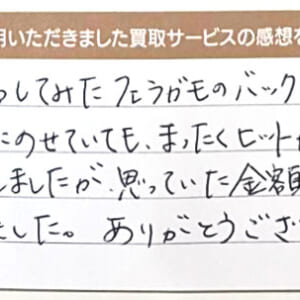 用いただきました買取サービスの感想を
してみたフェラガモのバック
にのせていても、まったくヒット
しましたが、思っていた金額
した。ありがとうござ